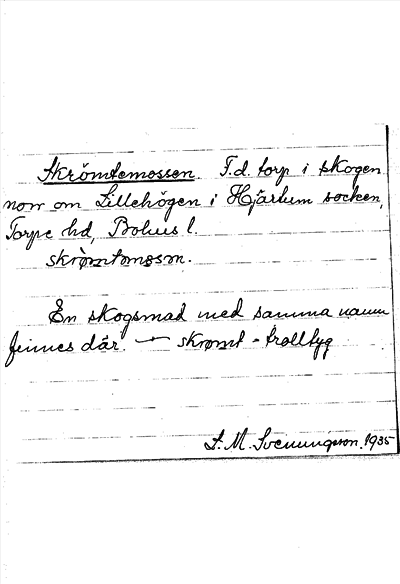 Skrömtemossen. F.d. torp i skogen
norr om Lillehögen i Hjärtum socken,
Torpe hd, Bohus l.
skrømtomåsǝn.
En skogsmad med samma namn
finnes där. — skrømt = trolltyg
S. M. Svenungsson. 1935